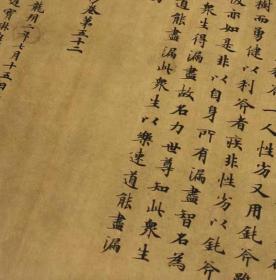 一人性劣又用鈍斧雖
樹而勇健以利斧者疾非性劣以鈍斧
彼亦如是非以自身所有漏盡智名為
衆生得漏盡故名力世尊知此衆生
道能盡漏此衆生以樂速道能盡漏
卷第五十二
龍朔二年七月十五日